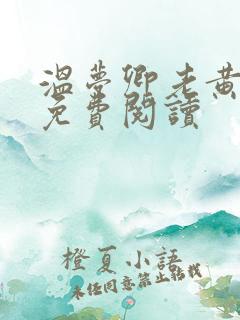 溫夢卿老黃
免費閱讀
橙夏小語
未經同意禁止轉載